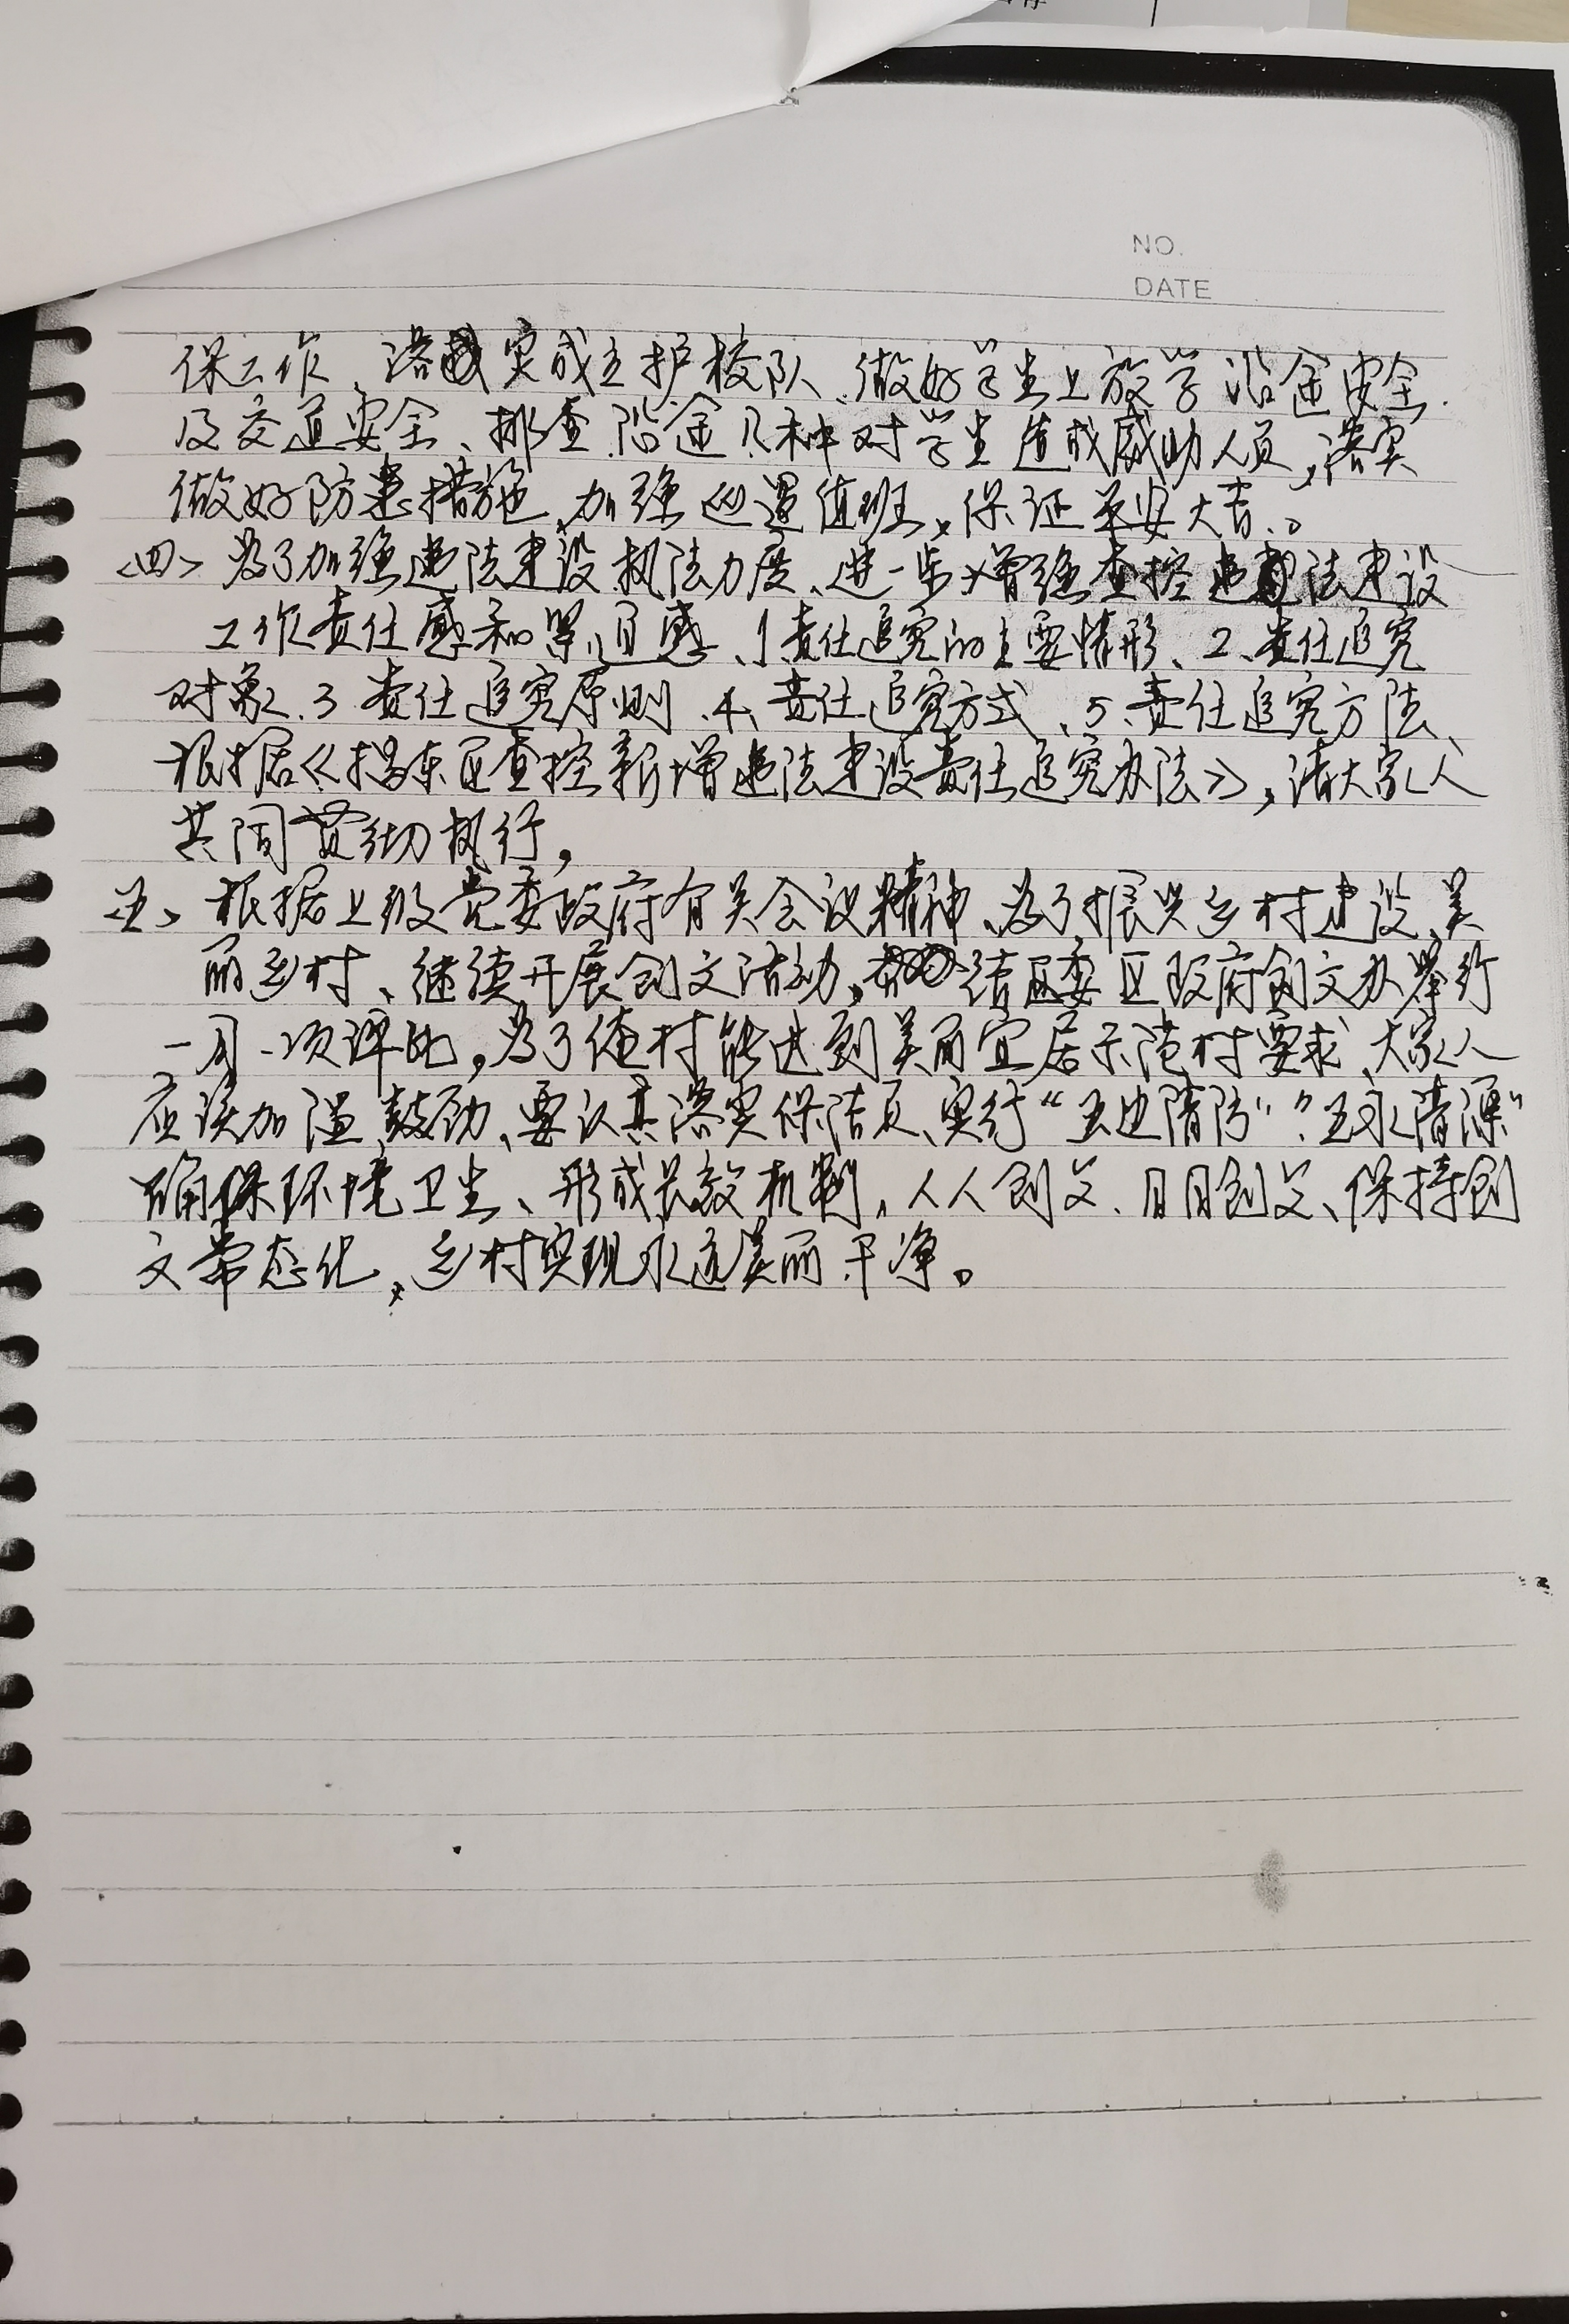 NO.
DATE
保工作、落实成立护校队、做好学生上放学沿途安全
及交通安全、排查沿途几种对学生造成威胁人员,落实
做好防患措施,加强巡逻值班,保证平安大吉.。
<四>为了加强违法建设执法力度、进一步增强查控违法建设
工作责任感和紧迫感、1责任追究的主要情形、2、责任追究
对象、3责任追究原则、4、责任追究方式、5、责任追究方法、
根据《揭东区查控新增违法建设责任追究办法》,请大家人
共同贯彻执行,
<五>根据上级党委政府有关会议精神、为了振兴乡村建设、美
丽乡村、继续开展创文活动,结区委区政府创文办举行
一月一次评比,为了使村能达到美丽宜居示范村要求、大家人
应该加温鼓劲、要认真落实保洁员、实行“五边清污”“五永清漂”
确保环境卫生、形成长效机制,人人创文、月月创文、保持创
文常态化,乡村实现永远美丽干净。